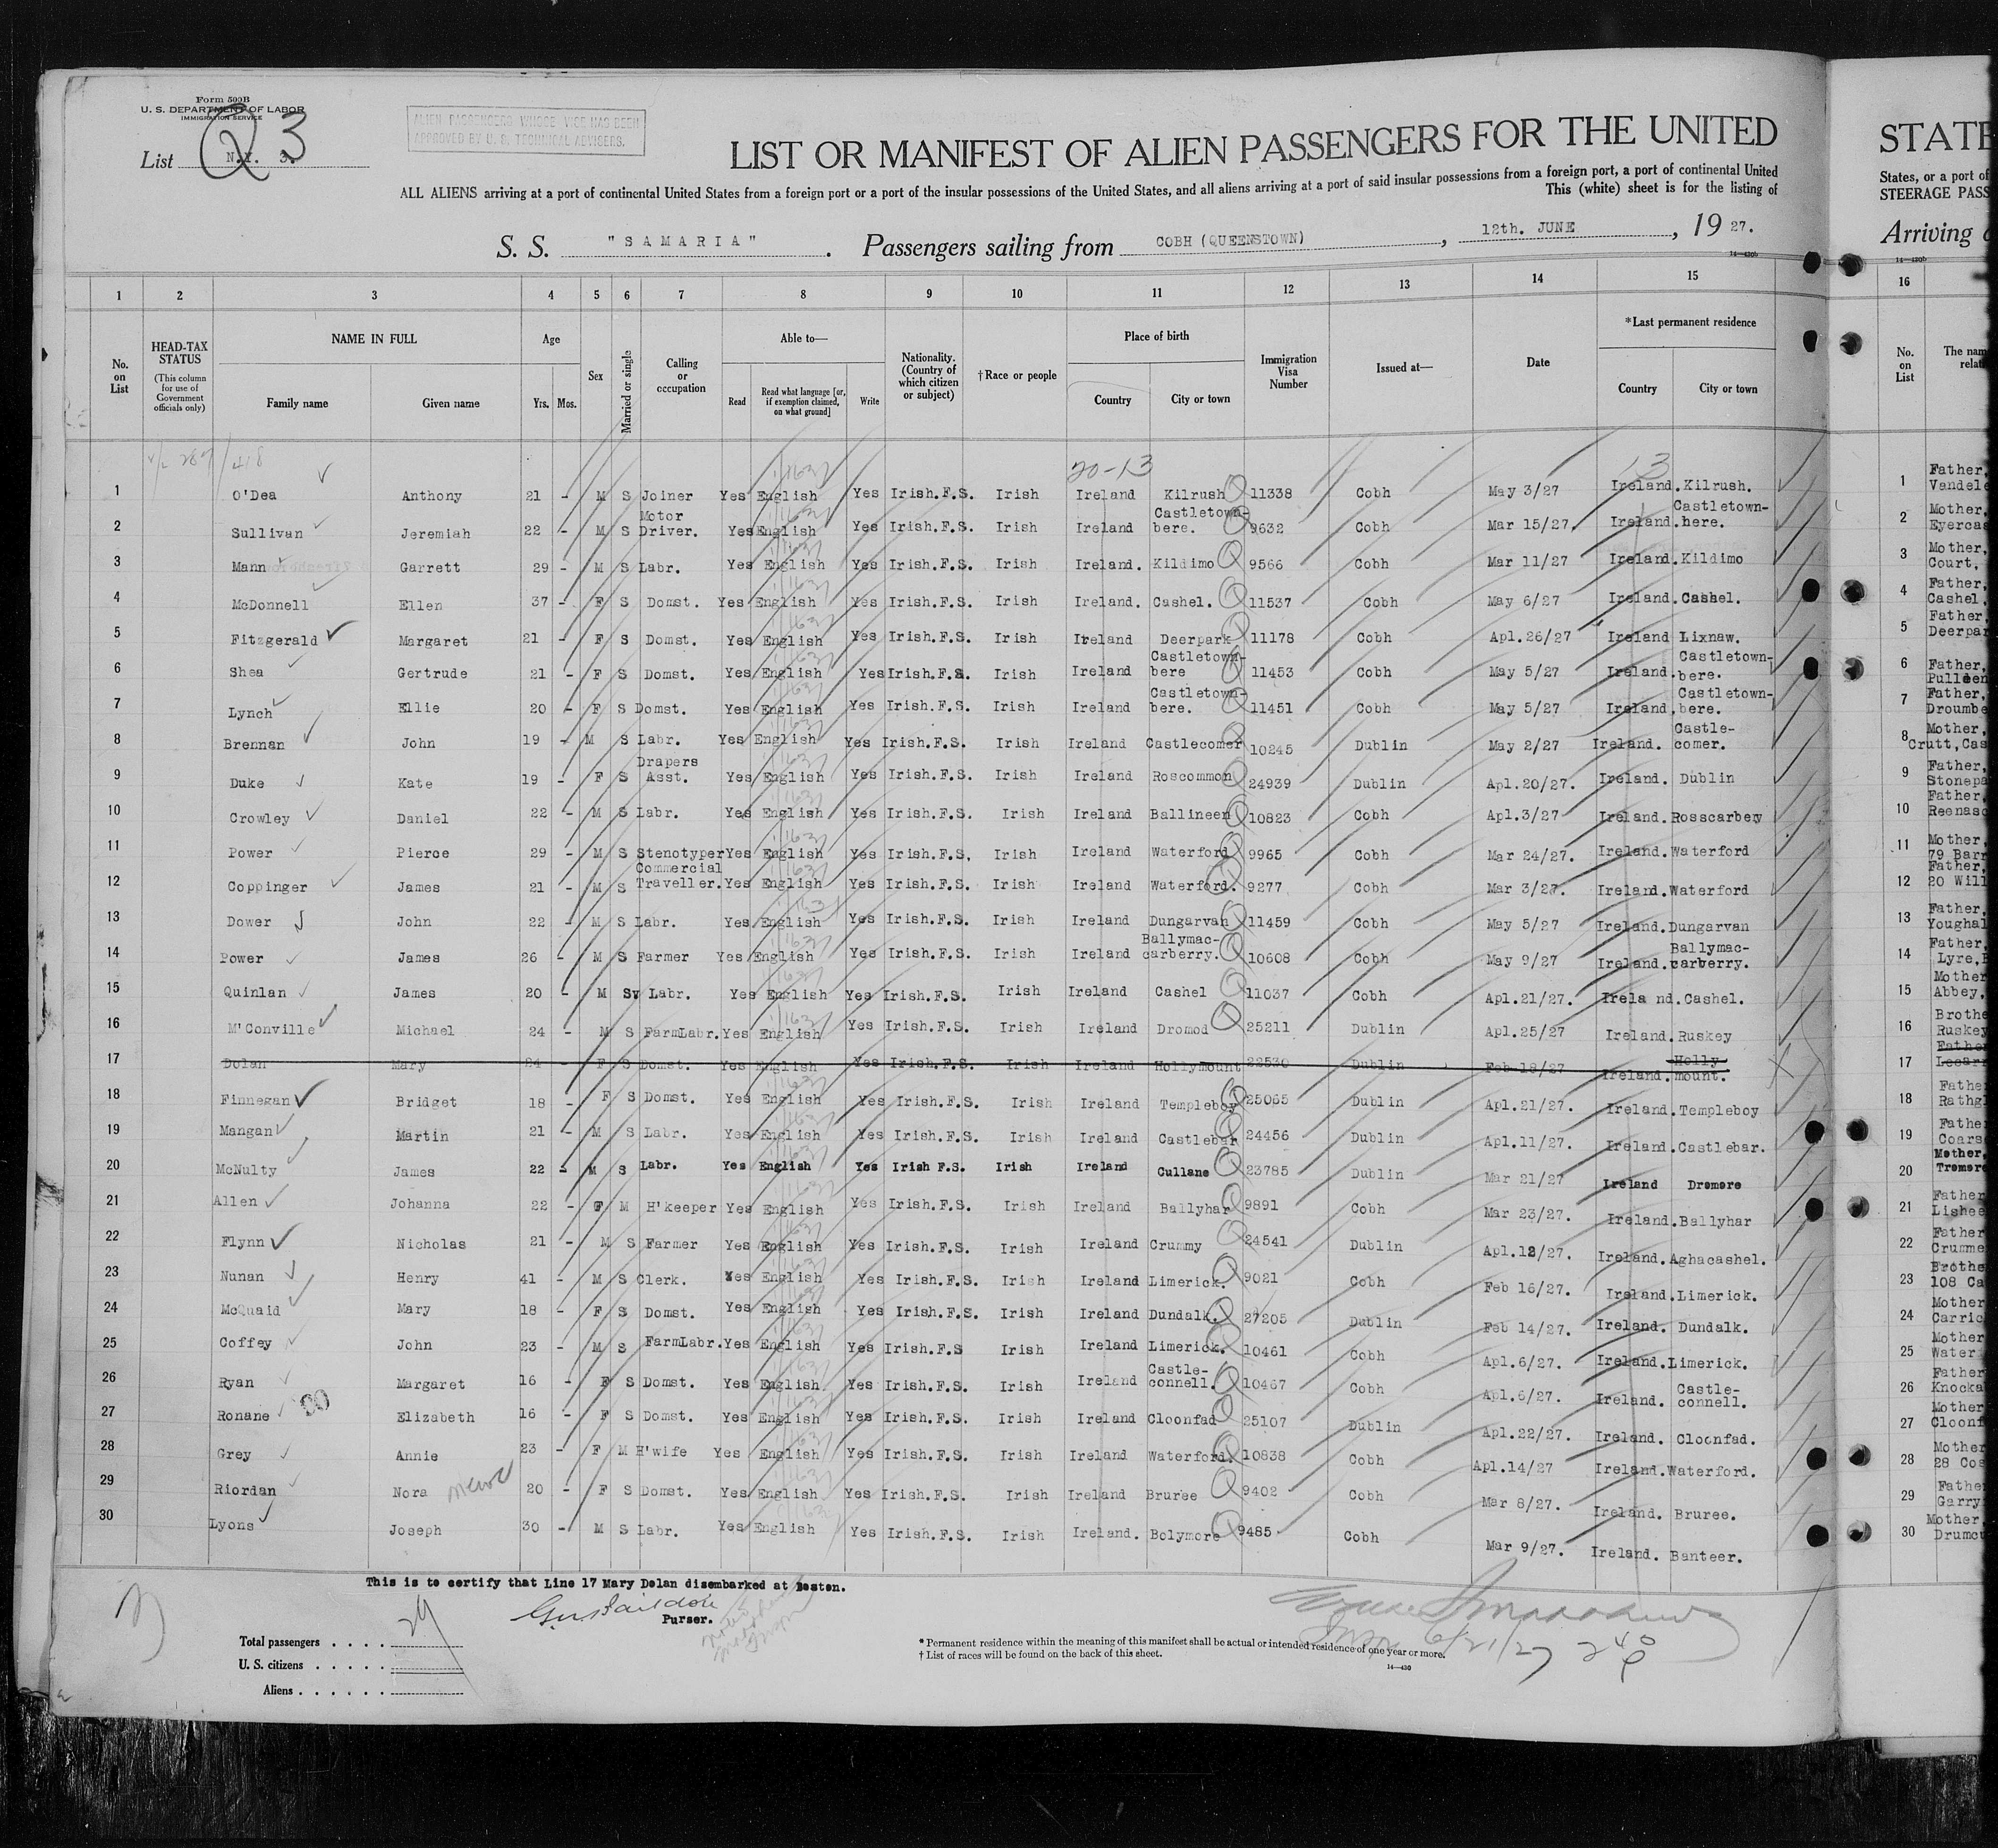 Form 500B
U. S. DEPARTMENT OF LABOR
IMMIGRATION SERVICE
List N.Y. 3.
Q 3
ALIEN PASSENGERS WHOSE VICE HAS BEEN
APPROVED BY U. S. TECHNICAL ADVISERS.
LIST OR MANIFEST OF ALIEN PASSENGERS FOR THE UNITED
ALL ALIENS arriving at a port of continental United States from a foreign port or a port of the insular possessions of the United States, and all aliens arriving at a port of said insular possessions from a foreign port, a port of continental United
This (white) sheet is for the listing of
S. S. "SAMARIA". Passengers sailing from COBH (QUEENSTOWN), 12th. JUNE, 1927.
14—430b
1 2 3 4 5 6 7 8 9 10 11 12 13 14 15
No. on List
HEAD-TAX STATUS
(This column for use of Government officials only)
NAME IN FULL
Family name Given name
Age
Yrs. Mos.
Sex
Married or single
Calling or occupation
Able to—
Read Read what language [or, if exemption claimed, on what ground] Write
Nationality. (Country of which citizen or subject)
†Race or people
Place of birth
Country City or town
Immigration Visa Number
Issued at—
Date
*Last permanent residence
Country City or town
20-13 13
1 O'Dea Anthony 21 - M S Joiner Yes English Yes Irish.F.S. Irish Ireland Kilrush 11338 Cobh May 3/27 Ireland. Kilrush.
2 Sullivan Jeremiah 22 - M S Motor Driver. Yes English Yes Irish.F.S. Irish Ireland Castletown-bere. 9632 Cobh Mar 15/27. Ireland. Castletown-here.
3 Mann Garrett 29 - M S Labr. Yes English Yes Irish.F.S. Irish Ireland. Kildimo 9566 Cobh Mar 11/27 Ireland. Kildimo
4 McDonnell Ellen 37 - F S Domst. Yes English Yes Irish.F.S. Irish Ireland. Cashel. 11537 Cobh May 6/27 Ireland. Cashel.
5 Fitzgerald Margaret 21 - F S Domst. Yes English Yes Irish.F.S. Irish Ireland Deerpark 11178 Cobh Apl.26/27 Ireland Lixnaw.
6 Shea Gertrude 21 - F S Domst. Yes English Yes Irish.F.S. Irish Ireland Castletown-bere 11453 Cobh May 5/27 Ireland. Castletown-bere.
7 Lynch Ellie 20 - F S Domst. Yes English Yes Irish.F.S. Irish Ireland Castletown-bere. 11451 Cobh May 5/27 Ireland. Castletown-bere.
8 Brennan John 19 - M S Labr. Yes English Yes Irish.F.S. Irish Ireland Castlecomer 10245 Dublin May 2/27 Ireland. Castle-comer.
9 Duke Kate 19 - F S Drapers Asst. Yes English Yes Irish.F.S. Irish Ireland Roscommon 24939 Dublin Apl.20/27. Ireland. Dublin
10 Crowley Daniel 22 - M S Labr. Yes English Yes Irish.F.S. Irish Ireland Ballineen 10823 Cobh Apl.3/27 Ireland. Rosscarbery
11 Power Pierce 29 - M S Stenotyper Yes English Yes Irish.F.S. Irish Ireland Waterford 9965 Cobh Mar 24/27. Ireland. Waterford
12 Coppinger James 21 - M S Commercial Traveller. Yes English Yes Irish.F.S. Irish Ireland Waterford. 9277 Cobh Mar 3/27. Ireland. Waterford
13 Dower John 22 - M S Labr. Yes English Yes Irish.F.S. Irish Ireland Dungarvan 11459 Cobh May 5/27 Ireland. Dungarvan
14 Power James 26 - M S Farmer Yes English Yes Irish.F.S. Irish Ireland Ballymac-carberry. 10608 Cobh May 9/27 Ireland. Ballymac-carberry.
15 Quinlan James 20 - M S Labr. Yes English Yes Irish.F.S. Irish Ireland Cashel 11037 Cobh Apl.21/27. Irela nd. Cashel.
16 M'Conville Michael 24 - M S FarmLabr. Yes English Yes Irish.F.S. Irish Ireland Dromod 25211 Dublin Apl.25/27 Ireland. Ruskey
17 Dolan Mary 24 - F S Domst. Yes English Yes Irish.F.S. Irish Ireland Hollymount 22530 Dublin Feb 18/27 Ireland. Holly mount.
18 Finnegan Bridget 18 - F S Domst. Yes English Yes Irish.F.S. Irish Ireland Templeboy 25065 Dublin Apl.21/27. Ireland. Templeboy
19 Mangan Martin 21 - M S Labr. Yes English Yes Irish.F.S. Irish Ireland Castlebar 24456 Dublin Apl.11/27. Ireland. Castlebar.
20 McNulty James 22 - M S Labr. Yes English Yes Irish F.S. Irish Ireland Cullane 23785 Dublin Mar 21/27 Ireland Dromore
21 Allen Johanna 22 - F M H'keeper Yes English Yes Irish.F.S. Irish Ireland Ballyhar 9891 Cobh Mar 23/27. Ireland. Ballyhar
22 Flynn Nicholas 21 - M S Farmer Yes English Yes Irish.F.S. Irish Ireland Crummy 24541 Dublin Apl.12/27. Ireland. Aghacashel.
23 Nunan Henry 41 - M S Clerk. Yes English Yes Irish.F.S. Irish Ireland Limerick. 9021 Cobh Feb 16/27. Ireland. Limerick.
24 McQuaid Mary 18 - F S Domst. Yes English Yes Irish.F.S. Irish Ireland Dundalk. 27205 Dublin Feb 14/27. Ireland. Dundalk.
25 Coffey John 23 - M S FarmLabr. Yes English Yes Irish.F.S Irish Ireland Limerick. 10461 Cobh Apl.6/27. Ireland. Limerick.
26 Ryan Margaret 16 - F S Domst. Yes English Yes Irish.F.S. Irish Ireland Castle-connell. 10467 Cobh Apl.6/27. Ireland. Castle-connell.
27 Ronane Elizabeth 16 - F S Domst. Yes English Yes Irish.F.S. Irish Ireland Cloonfad 25107 Dublin Apl.22/27. Ireland. Cloonfad.
28 Grey Annie 23 - F M H'wife Yes English Yes Irish.F.S. Irish Ireland Waterford. 10838 Cobh Apl.14/27 Ireland. Waterford.
29 Riordan Nora 20 - F S Domst. Yes English Yes Irish.F.S. Irish Ireland Bruree 9402 Cobh Mar 8/27. Ireland. Bruree.
30 Lyons Joseph 30 - M S Labr. Yes English Yes Irish.F.S. Irish Ireland. Bolymore 9485 Cobh Mar 9/27. Ireland. Banteer.
This is to certify that Line 17 Mary Dolan disembarked at Boston.
Purser.
Total passengers . . . . 29
U. S. citizens . . . . .
Aliens . . . . . .
* Permanent residence within the meaning of this manifest shall be actual or intended residence of one year or more.
† List of races will be found on the back of this sheet.
14—430
6/21/27
STATE
States, or a port of
STEERAGE PASS
Arriving
14—430b
16
No. on List
The nam
relati
1 Father,
Vandele
2 Mother,
Eyercas
3 Mother,
Court,
4 Father,
Cashel.
5 Father,
Deerpar
6 Father,
Pulleen
7 Father,
Droumbe
8 Mother,
Crutt,Cas
9 Father,
Stonepa
10 Father,
Reenasc
11 Mother,
79 Barr
12 Father,
20 Will
13 Father,
Youghal
14 Father,
Lyre,B
15 Mother
Abbey,
16 Brothe
Ruskey
17 Father
Lecarr
18 Father
Rathgl
19 Father
Coars
20 Mother,
Tromore
21 Father
Lishee
22 Father
Crumme
23 Brothe
108 Ca
24 Mother
Carric
25 Mother
Water
26 Father
Knocka
27 Mother
Cloonf
28 Mother
28 Cos
29 Father
Garry
30 Mother.
Drumcu